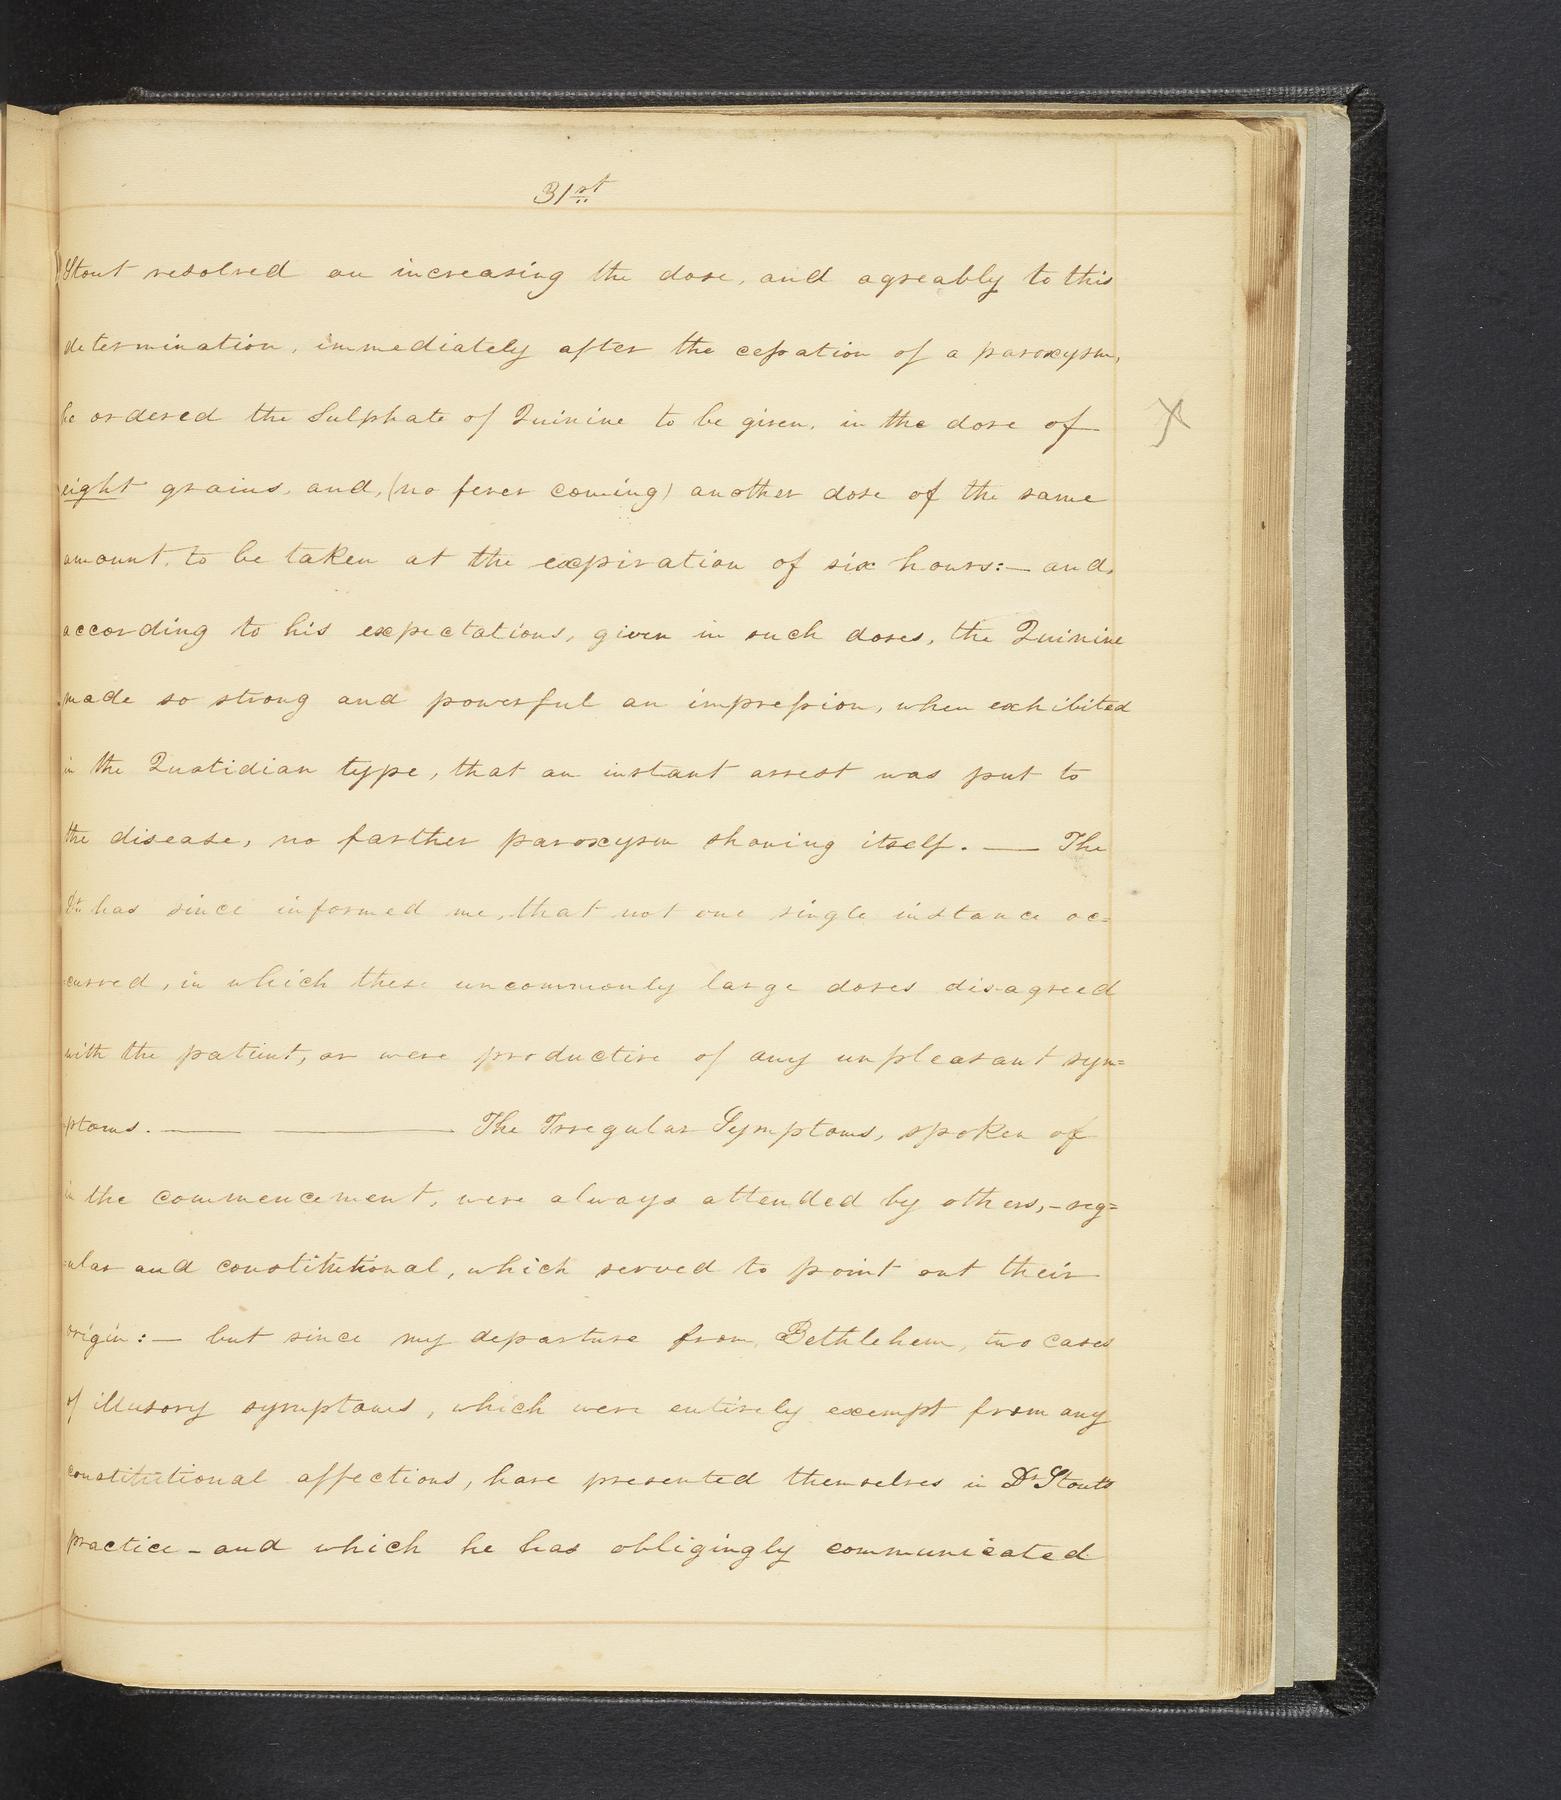 31st
Stout resolved on increasing the dose, and agreably to this
determination, immediately after the cessation of a paroxysm,
he ordered the Sulphate of Quinine to be given, in the dose of
eight grains, and, (no fever coming) another dose of the same
amount, to be taken at the expiration of six hours:— and,
according to his expectations, given in such doses, the Quinine
made so strong and powerful an impression, when exhibited
in the Quotidian type, that an instant arrest was put to
the disease, no farther paroxysm showing itself. — The
Dr. has since informed me, that not one single instance oc=
=curred, in which these uncommonly large doses disagreed
with the patient, or were productive of any unpleasant sym=
=ptoms. — — The Irregular Symptoms, spoken of
in the commencement, were always attended by others,– reg=
=ular and constitutional, which served to point out their
origin:— but since my departure from Bethlehem, two cases
of illusory symptoms, which were entirely exempt from any
constitutional affections, have presented themselves in Dr Stout's
practice – and which he has obligingly communicated